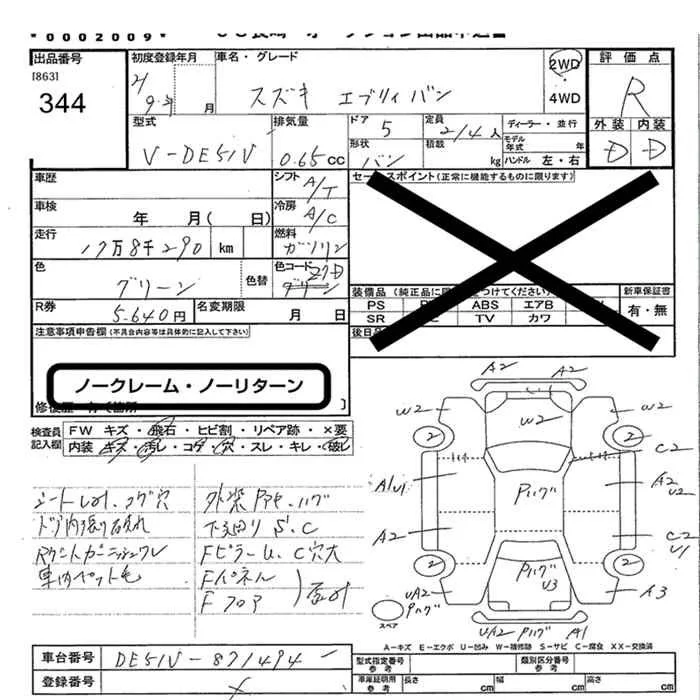 *0002009*
出品番号 初度登録年月 車名・グレード 2WD 評価点
[863]
344 9年 月 スズキ エブリィバン 4WD R
型式 排気量 ドア 5 定員 2/4人 ディーラー・並行 外装 内装
V-DE51V 0.65cc 形状 バン 積載 kg モデル年式 年 ハンドル 左・右 D D
車歴 シフト A/T セールスポイント(正常に機能するものに限ります)
車検 年 月( 日) 冷房 A/C
走行 17万8千290 km 燃料 ガソリン
色 グリーン 色替 色コード Z7D
グリーン
装備品(純正品に限 つけてください) 新車保証書
PS ABS エアB 有・無
SR TV カワ
R券 5.640円 名変期限 月 日 後日
注意事項申告欄(不具合内容等は具体的に記入して下さい)
ノークレーム・ノーリターン
修復歴 有(箇所 )
検査員記入欄 FW キズ・飛石・ヒビ割・リペア跡・×要
内装 キズ・汚レ・コゲ・穴・スレ・キレ・破レ
コゲ穴
ドア内張り破れ 下廻り S.C
Fピラー U.C穴大
車内ペット毛 Fパネル
F フロア
A2 A2
W2 W2 W2
2 2
A1U1 Pハゲ A2
U2
A2 C2
U1
2 2
UA2 Pハゲ A3
Pハゲ U3
スペア UA2 Pハゲ A1
A-キズ E-エクボ U-凹み W-補修跡 S-サビ C-腐食 XX-交換済
車台番号 DE51V-871494
登録番号
型式指定番号 参考 類別区分番号 参考
車庫証明用 参考 長さ cm 幅 cm 高さ cm